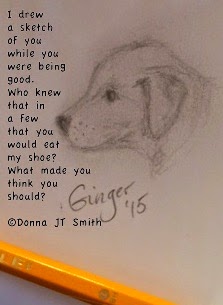 I drew
a sketch
of you
while you
were being
good.
Who knew
that in
a few
that you
would eat
my shoe?
What made you
think you
should?
©Donna JT Smith
Ginger
'15